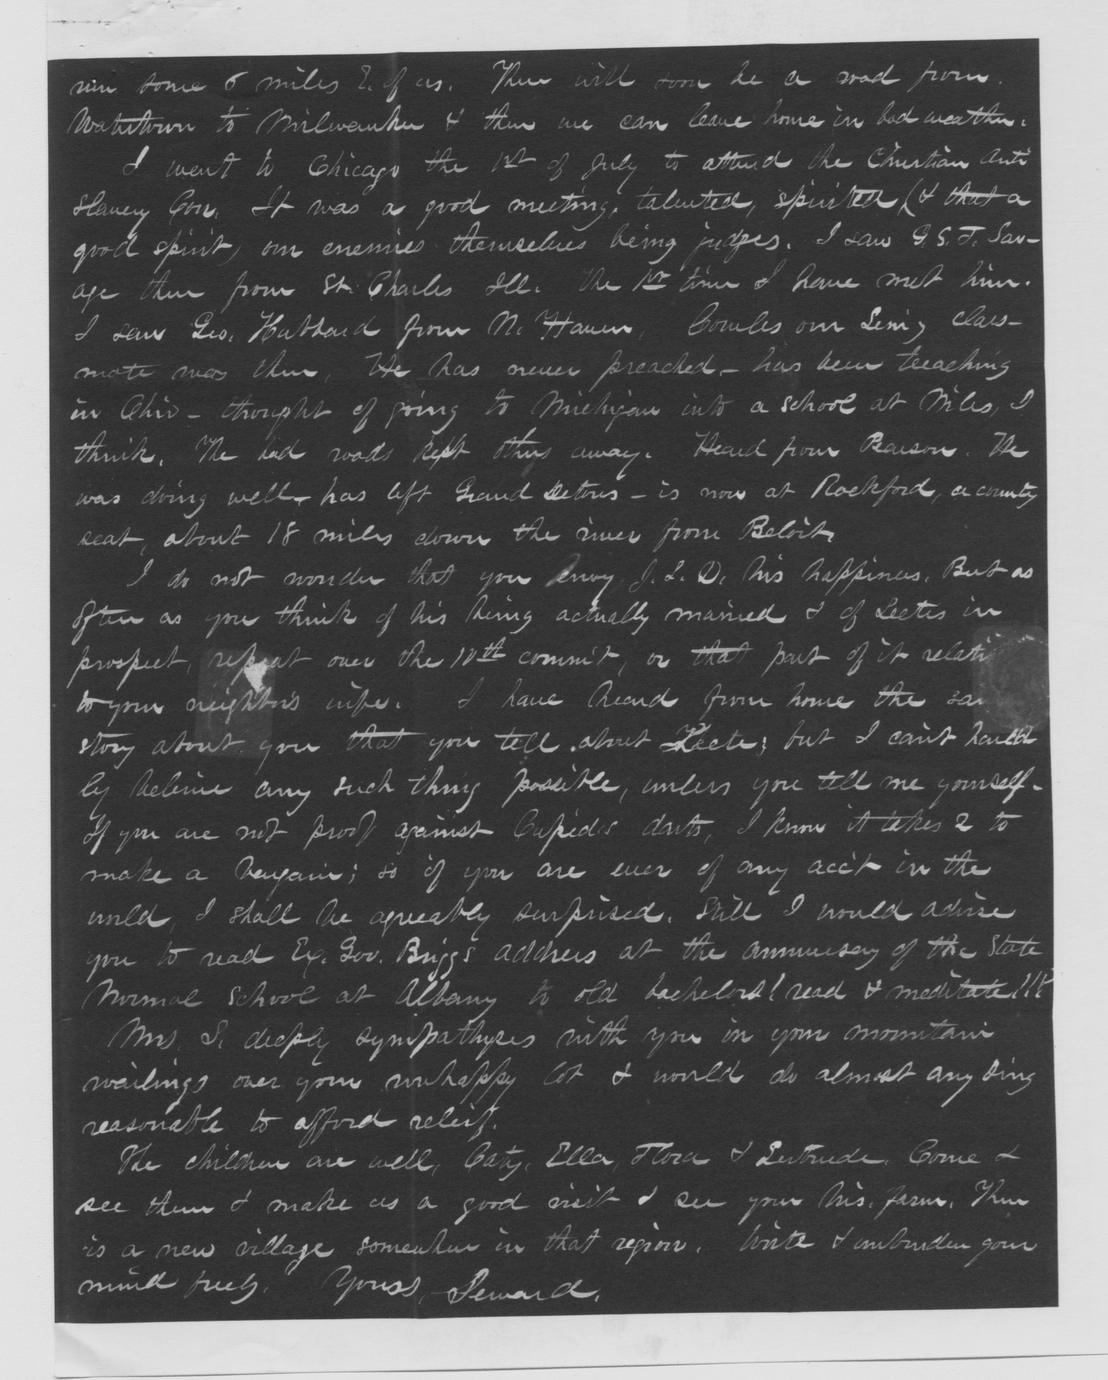 run some 6 miles E. of us. There will soon be a road from
Watertown to Milwaukee & then we can leave home in bad weather.
I went to Chicago the 1st of July to attend the Christian Anti
Slavery Con. It was a good meeting, talented, spirited, (& that a
good spirit) our enemies themselves being judges. I saw G. S. F. Sav-
age then from St. Charles Ill. the 1st time I have met him.
I saw Geo. Hubbard from N. Haven, Cowles our Sem'y class-
mate was there, He has never preached - has been teaching
in Ohio - thought of going to Michigan into a school at Niles, I
think. The bad roads kept others away. Heard from Pearson. He
was doing well - has left Grand Detour - is now at Rockford, a county
seat, about 18 miles down the river from Beloit.
I do not wonder that you envy J. L. D. his happiness. But as
often as you think of his being actually married & of Leetes in
prospect, repeat over the 10th commt, or that part of it relati
to your neighbor's wife. I have heard from home the sa
story about you that you tell about Leete; but I can't hard
ly believe any such thing possible, unless you tell me yourself.
If you are not proof against Cupid's darts, I know it takes 2 to
make a bargain; so if you are ever of any acc't in the
world, I shall be agreeably surprised. Still I would advise
you to read Ex. Gov. Briggs address at the anniversary of the State
Normal School at Albany to old bachelors! read & meditate!!!
Mrs. S. deeply sympathyses with you in your mountain
wailings over your unhappy lot & would do almost any thing
reasonable to afford relief.
The children are well, Caty, Ella, Flora & Gertrude. Come &
see them & make us a good visit & see your Wis. farm. There
is a new village somewhere in that region. Write & unburden your
mind freely. Yours, Seward.